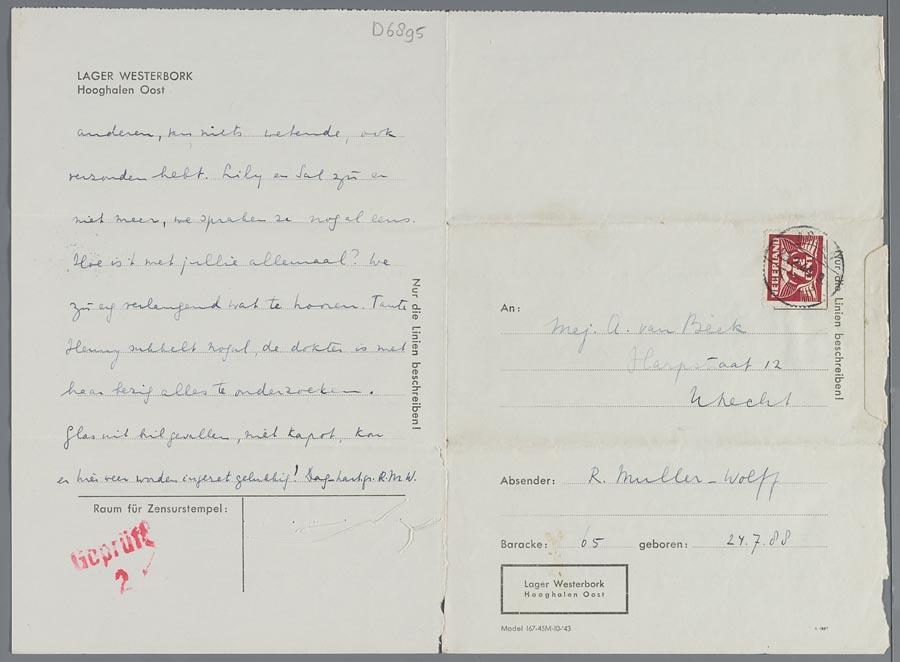 D6895
LAGER WESTERBORK
Hooghalen Oost
anderen, niets wetende, ook
verzonden hebt. Lily en Sal zijn er
niet meer, we spraken ze nogal eens.
Hoe is't met jullie allemaal? We
zijn erg verlangend wat te hooren. Tante
Henny sukkelt nogal, de dokter is met
haar bezig alles te onderzoeken.
Glas uit bril gevallen, niet kapot, kon
er hier weer worden ingezet gelukkig! Dag hartgr. R.M.W.
Nur die Linien beschreiben!
Raum für Zensurstempel:
Geprüft
2
NEDERLAND
7½
CENT
Nur die Linien beschreiben!
An:
Mej. A. van Beek
Harpstraat 12
Utrecht
Absender: R. Muller-Wolff
Baracke: 65 geboren: 24.7.88
Lager Westerbork
Hooghalen Oost
Model 167-45M-10-'43